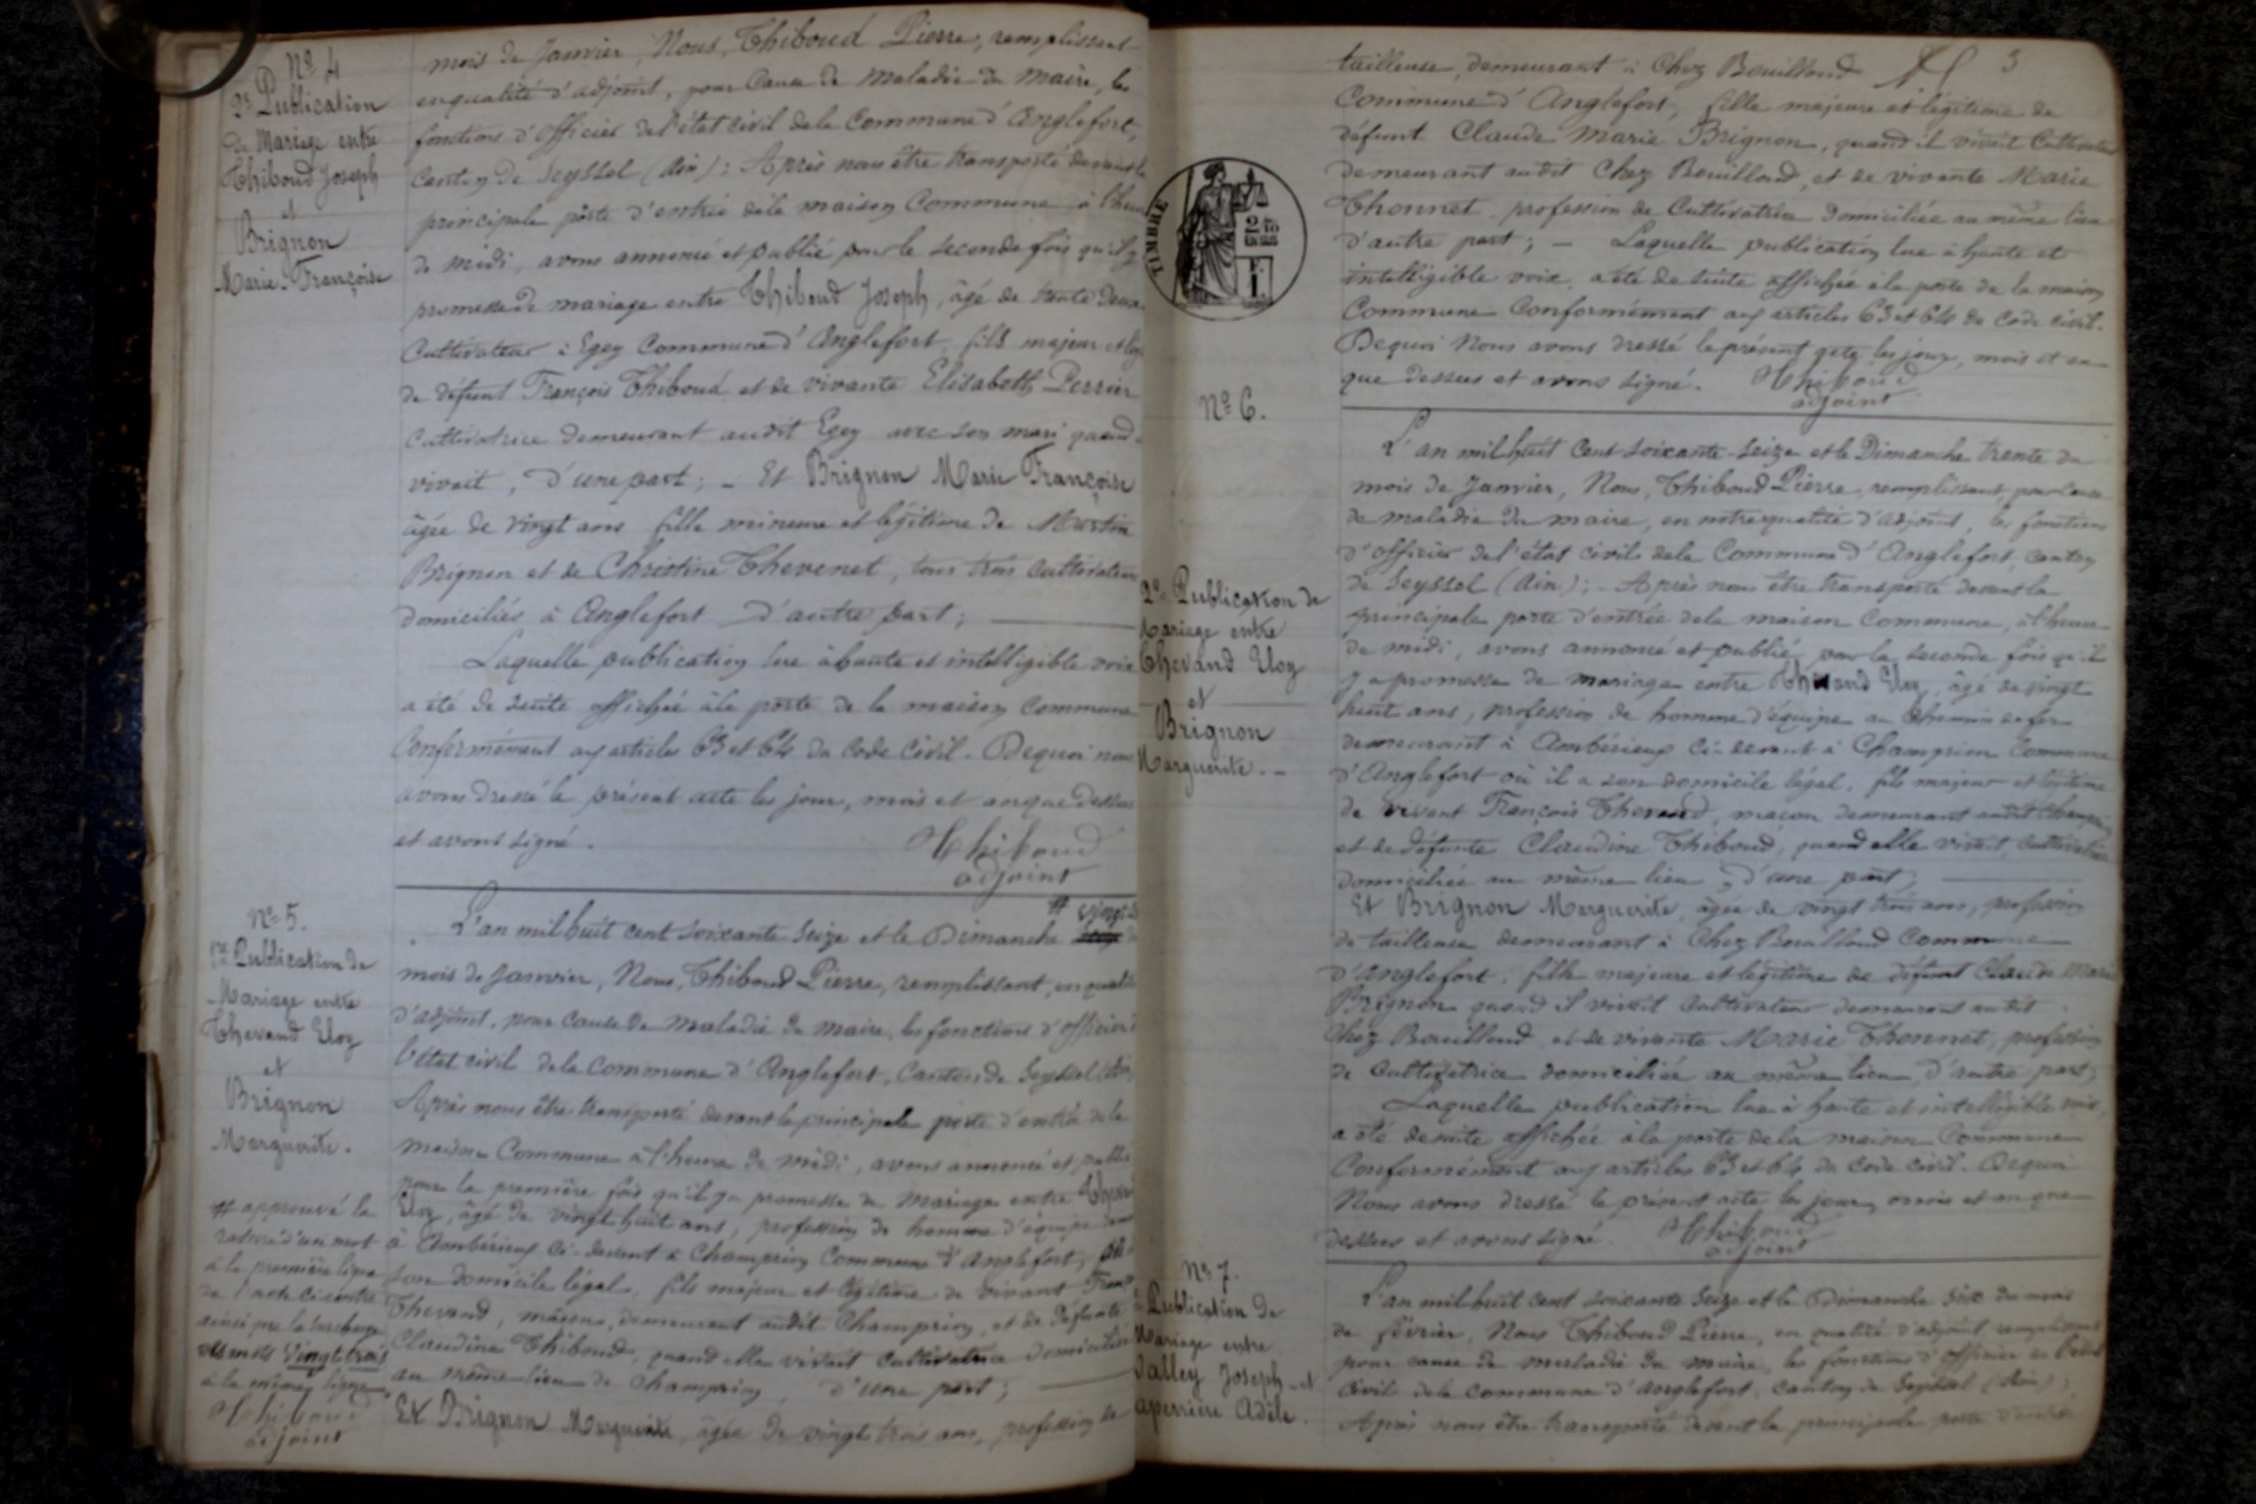 Nº 4
2e Publication
de Mariage entre
Thiboud Joseph
et
Brignon
Marie-Françoise
mois de Janvier, Nous, Thiboud Pierre, remplissant
en qualité d'adjoint, pour Cause de maladie du maire, les
fonctions d'officier de l'état civil de la Commune d'Anglefort,
Canton de Seyssel (Ain): Après nous être transporté devant la
principale porte d'entrée de la maison Commune, à l'heure
de midi, avons annoncé et publié pour la seconde fois qu'il y a
promesse de mariage entre Thiboud Joseph, âgé de trente deux
Cultivateur à Egey Commune d'Anglefort, fils majeur et
de défunt François Thiboud et de vivante Elisabeth Perrier
Cultivatrice demeurant audit Egey avec son mari quand
vivait, D'une part; - Et Brignon Marie Françoise
âgée de vingt ans fille mineure et légitime de Martin
Brignon et de Christine Thevenet, tous trois Cultivateurs
domiciliés à Anglefort D'autre part;
Laquelle publication lue à haute et intelligible voix
a été de suite affichée à la porte de la maison Commune
Conformément aux articles 63 et 64 du Code Civil. Dequoi nous
avons dressé le présent acte les jour, mois et an que dessus
et avons signé.
Thiboud
adjoint
Nº 5.
1re Publication de
Mariage entre
Thevand Eloy
et
Brignon
Marguerite.
# approuvé la
rature d'un mot
à la première ligne
de l'acte ci contre
ainsi que la surcharge
des mots vingt trois
à la même ligne
Thiboud
adjoint
# vingt
L'an mil huit cent soixante Seize et le Dimanche
mois de Janvier, Nous, Thiboud Pierre, remplissant, en qualité
d'adjoint, pour Cause de maladie du maire, les fonctions d'officier
l'état civil de la Commune d'Anglefort, Canton de Seyssel (Ain)
Après nous être transporté devant la principale porte d'entrée de la
maison Commune à l'heure de midi, avons annoncé et publié
pour la première fois qu'il y a promesse de mariage entre
Eloy, âgé de vingt huit ans, profession de homme d'équipe
à Ambérieux Ci-devant à Champrion Commune d'Anglefort, où
son domicile légal, fils majeur et légitime de vivant
Thevand, maçon, demeurant audit Champrion, et de défunte
Claudine Thiboud, quand elle vivait Cultivatrice domiciliée
au même lieu de Champrion, D'une part;
Et Brignon Marguerite, âgée de vingt trois ans, profession de
3
tailleuse, demeurant à Chez Bouilloud
Commune d'Anglefort, fille majeure et légitime de
défunt Claude Marie Brignon, quand il vivait Cultivateur
demeurant audit Chez Bouilloud, et de vivante Marie
Thonnet profession de Cultivatrice domiciliée au même lieu
d'autre part; - Laquelle publication lue à haute et
intelligible voix, a été de suite affichée à la porte de la maison
Commune Conformément aux articles 63 et 64 du Code civil.
Dequoi Nous avons dressé le présent acte les jour, mois et an
que dessus et avons signé.
Thiboud
adjoint
TIMBRE
Nº 6.
2e Publication de
Mariage entre
Thevand Eloy
et
Brignon
Marguerite.-
L'an mil huit Cent soixante-Seize et le Dimanche trente du
mois de Janvier, Nous, Thiboud Pierre, remplissant, pour Cause
de maladie du maire, en notre qualité d'adjoint, les fonctions
d'officier de l'état civil de la Commune d'Anglefort, canton
de Seyssel (Ain); - Après nous être transporté devant la
principale porte d'entrée de la maison Commune, à l'heure
de midi, avons annoncé et publié pour la seconde fois qu'il
y a promesse de mariage entre Thevand Eloy, âgé de vingt
huit ans, profession de homme d'équipe au Chemin de fer
demeurant à Ambérieux Ci-devant à Champrion Commune
d'Anglefort où il a son domicile légal, fils majeur et légitime
de vivant François Thevand, maçon demeurant audit Champrion
et de défunte Claudine Thiboud, quand elle vivait, Cultivatrice
domiciliée au même lieu, D'une part,
Et Brignon Marguerite, âgée de vingt trois ans, profession
de tailleuse demeurant à Chez Bouilloud Commune
d'Anglefort, fille majeure et légitime de défunt Claude Marie
Brignon quand il vivait Cultivateur demeurant audit
Chez Bouilloud, et de vivante Marie Thonnet, profession
de Cultivatrice domiciliée au même lieu D'autre part;
Laquelle publication lue à haute et intelligible voix,
a été de suite affichée à la porte de la maison Commune
Conformément aux articles 63 et 64 du Code civil. Dequoi
Nous avons dressé le présent acte les jour, mois et an que
dessus et avons signé.
Thiboud
adjoint
Nº 7.
Publication de
Mariage entre
Joseph et
Adèle.
L'an mil huit cent soixante Seize et le Dimanche six du mois
de février, Nous Thiboud Pierre, en qualité d'adjoint remplissant
pour cause de maladie du maire, les fonctions d'officier de l'état
Civil de la commune d'Anglefort, canton de Seyssel (Ain);
Après nous être transporté devant la principale porte d'entrée